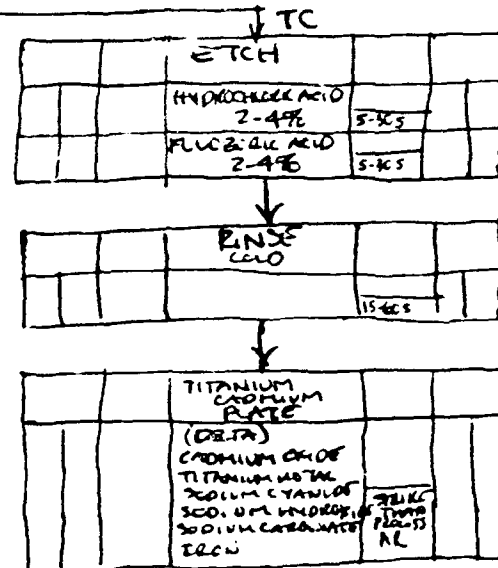 TC
ETCH
HYDROCHLORIC ACID
2-4%
5-30S
FLUOBORIC ACID
2-4%
5-30S
RINSE
COLD
15-60S
TITANIUM
CADMIUM
PLATE
(DELTA)
CADMIUM OXIDE
TITANIUM METAL
SODIUM CYANIDE
SODIUM HYDROXIDE
SODIUM CARBONATE
IRON
STRIKE
THAN
PROCESS
AR